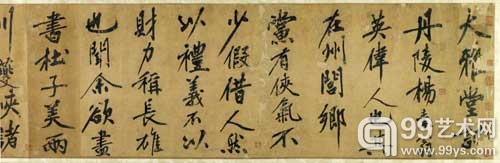 大雅堂記
丹陵楊素翁
英偉人也其
在州閭鄉
黨有俠氣不
少假借人然
以禮義不以
財力稱長雄
也聞余欲盡
書杜子美兩
川夔峽諸
华夏收藏网
www.99ys.com